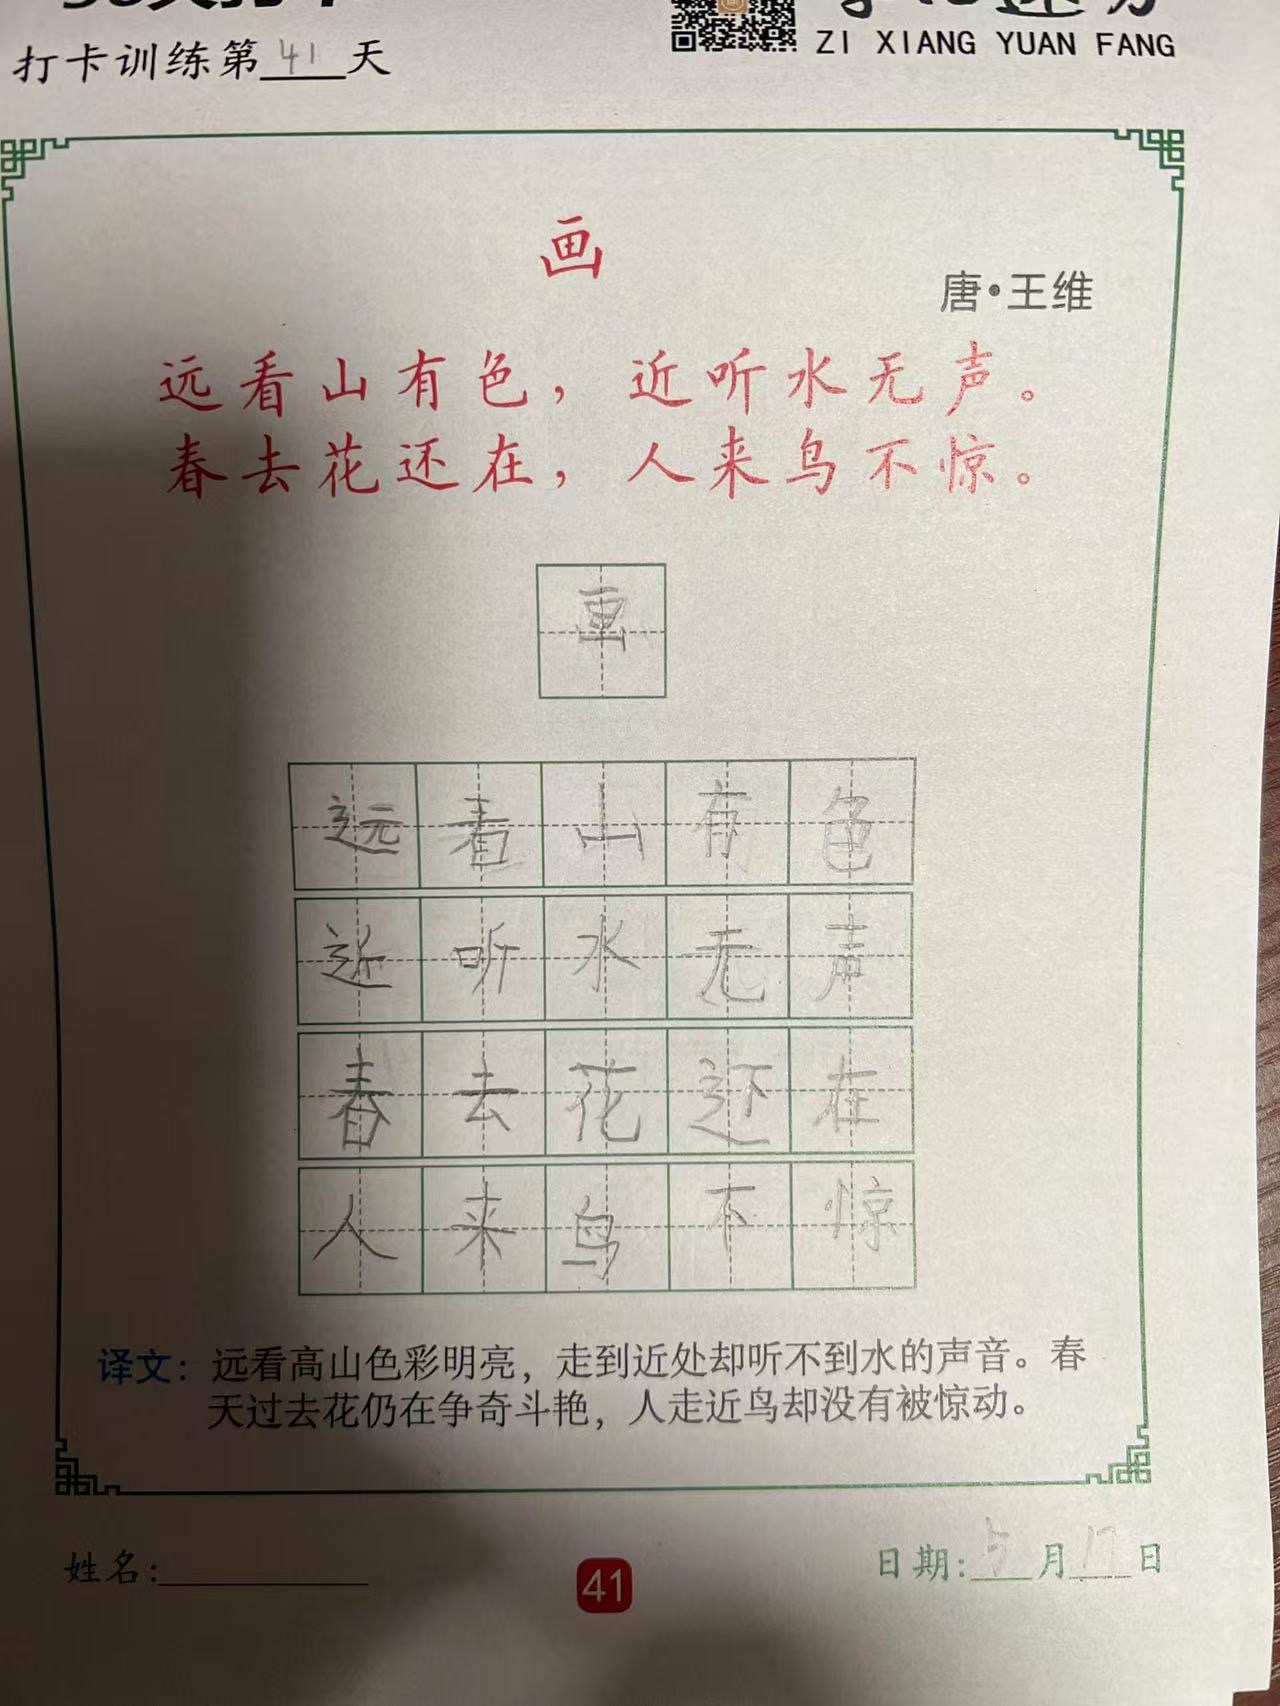 打卡训练第41天
ZI XIANG YUAN FANG
画
唐·王维
远看山有色，近听水无声。
春去花还在，人来鸟不惊。
画
远看山有色
近听水无声
春去花还在
人来鸟不惊
译文：远看高山色彩明亮，走到近处却听不到水的声音。春
天过去花仍在争奇斗艳，人走近鸟却没有被惊动。
姓名：
41
日期：5月17日